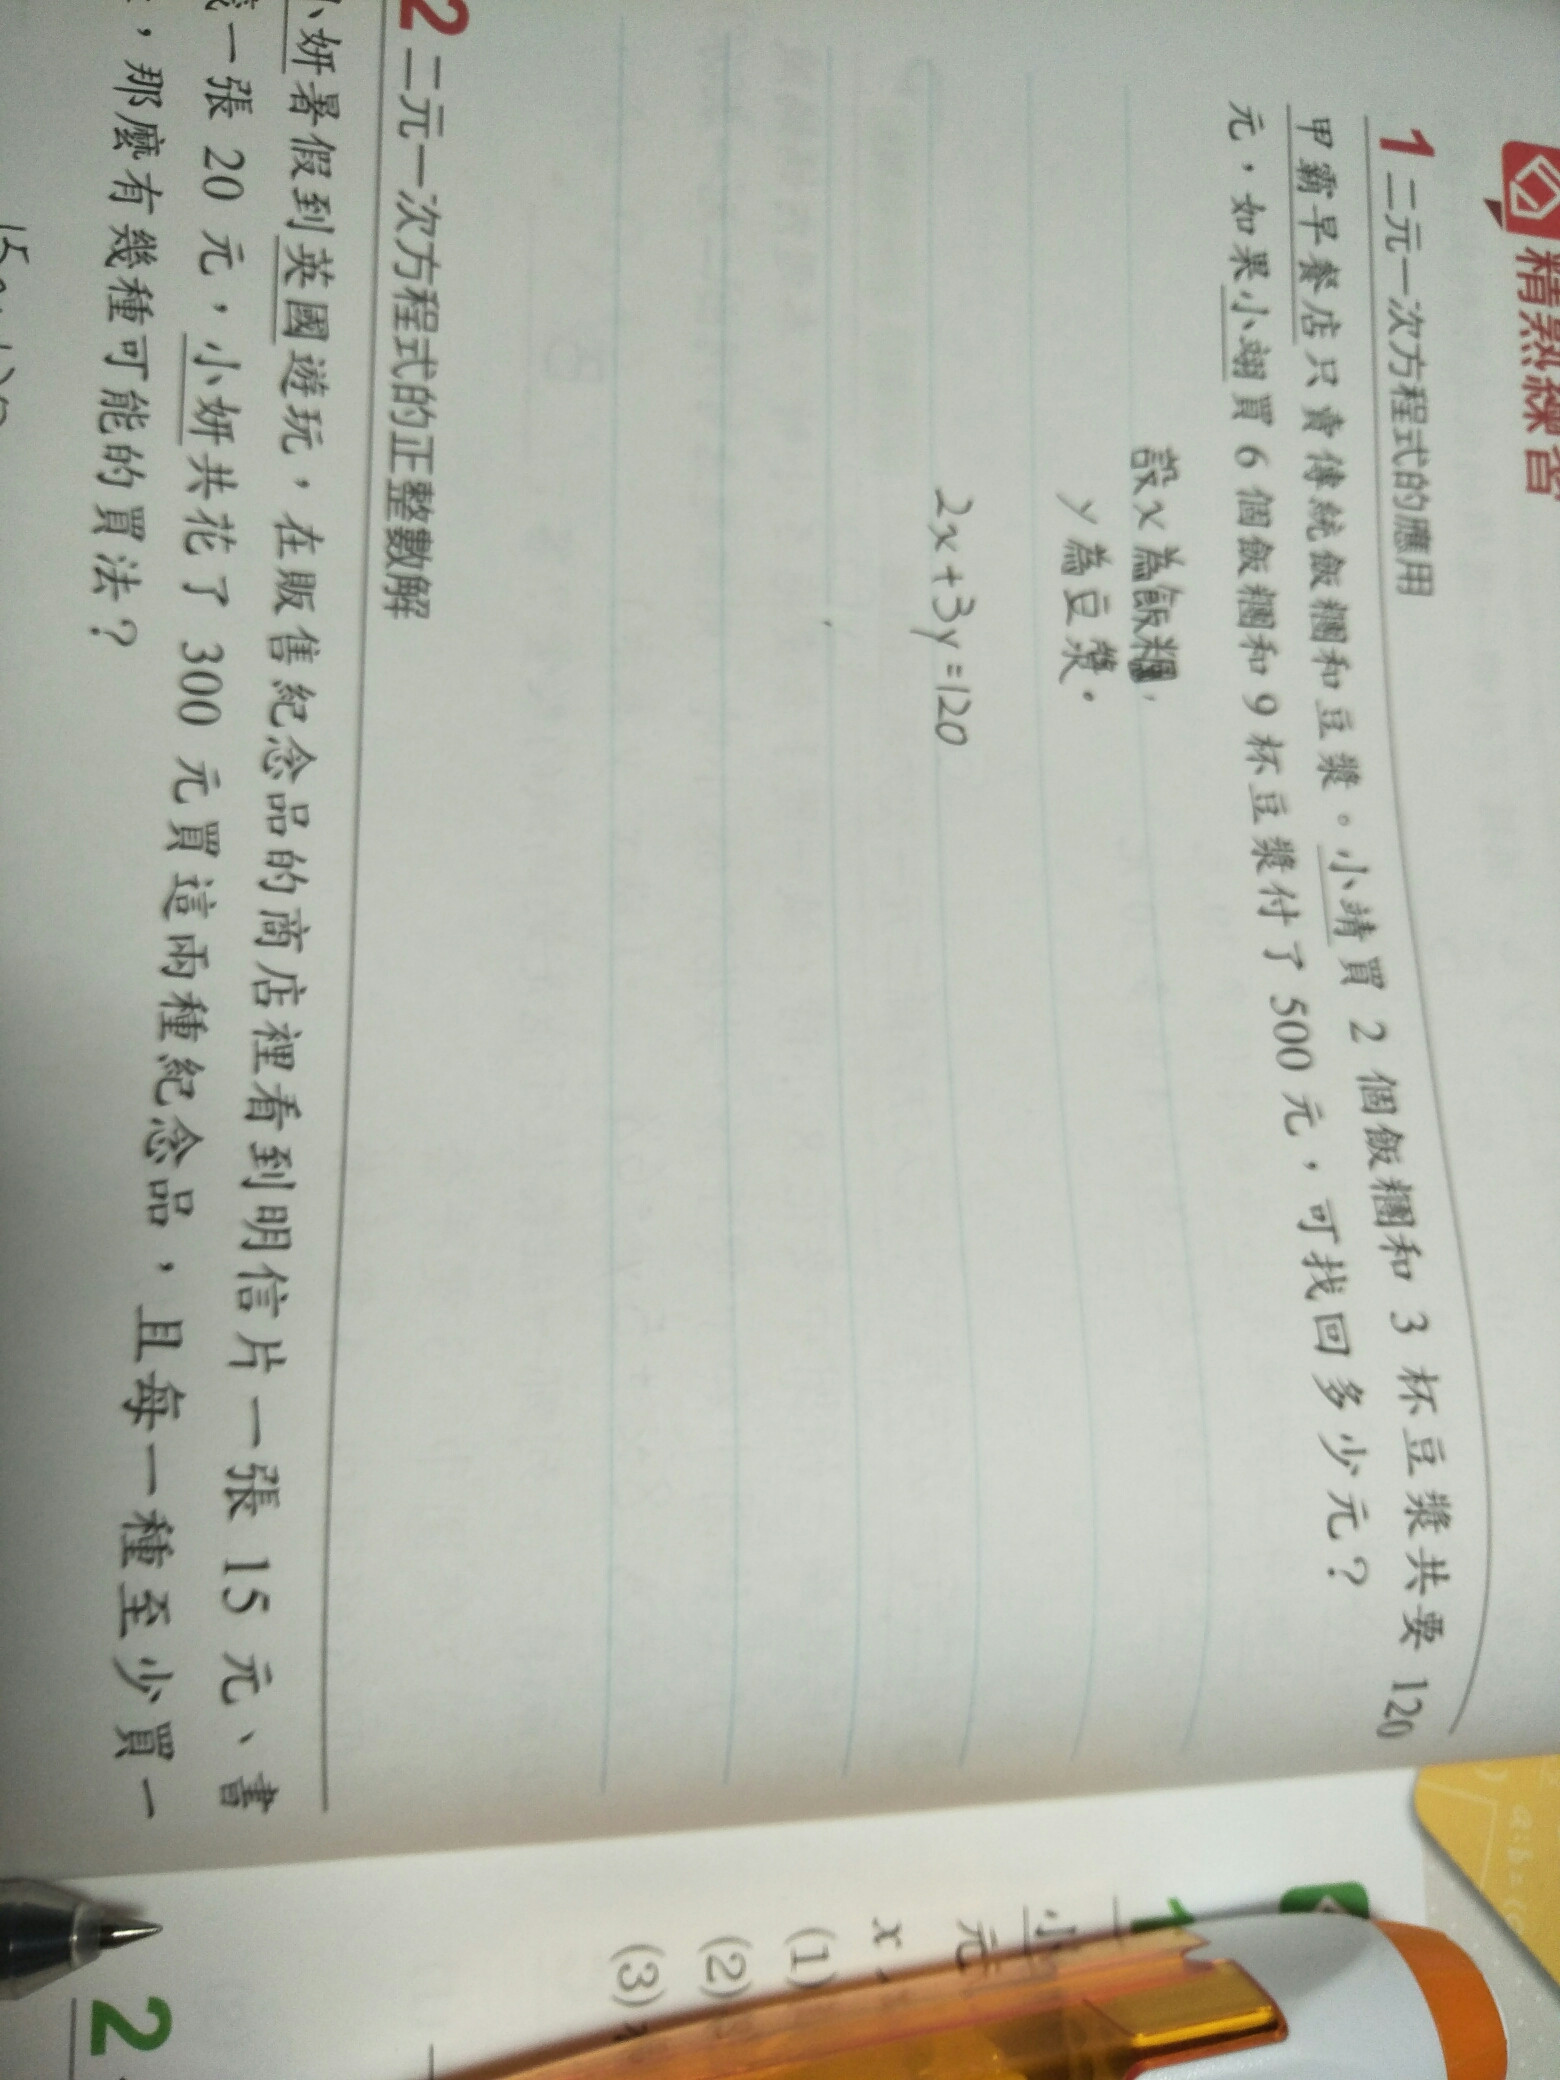 精熟練習
1 二元一次方程式的應用
甲霸早餐店只賣傳統飯糰和豆漿。小靖買 2 個飯糰和 3 杯豆漿共要 120
元，如果小翊買 6 個飯糰和 9 杯豆漿付了 500 元，可找回多少元？
設 x 為飯糰，
y 為豆漿。
2x+3y=120
2 二元一次方程式的正整數解
小妍暑假到英國遊玩，在販售紀念品的商店裡看到明信片一張 15 元、書
籤一張 20 元，小妍共花了 300 元買這兩種紀念品，且每一種至少買一
，那麼有幾種可能的買法？
1
小
元
x、
(1)
(2)
(3)
2